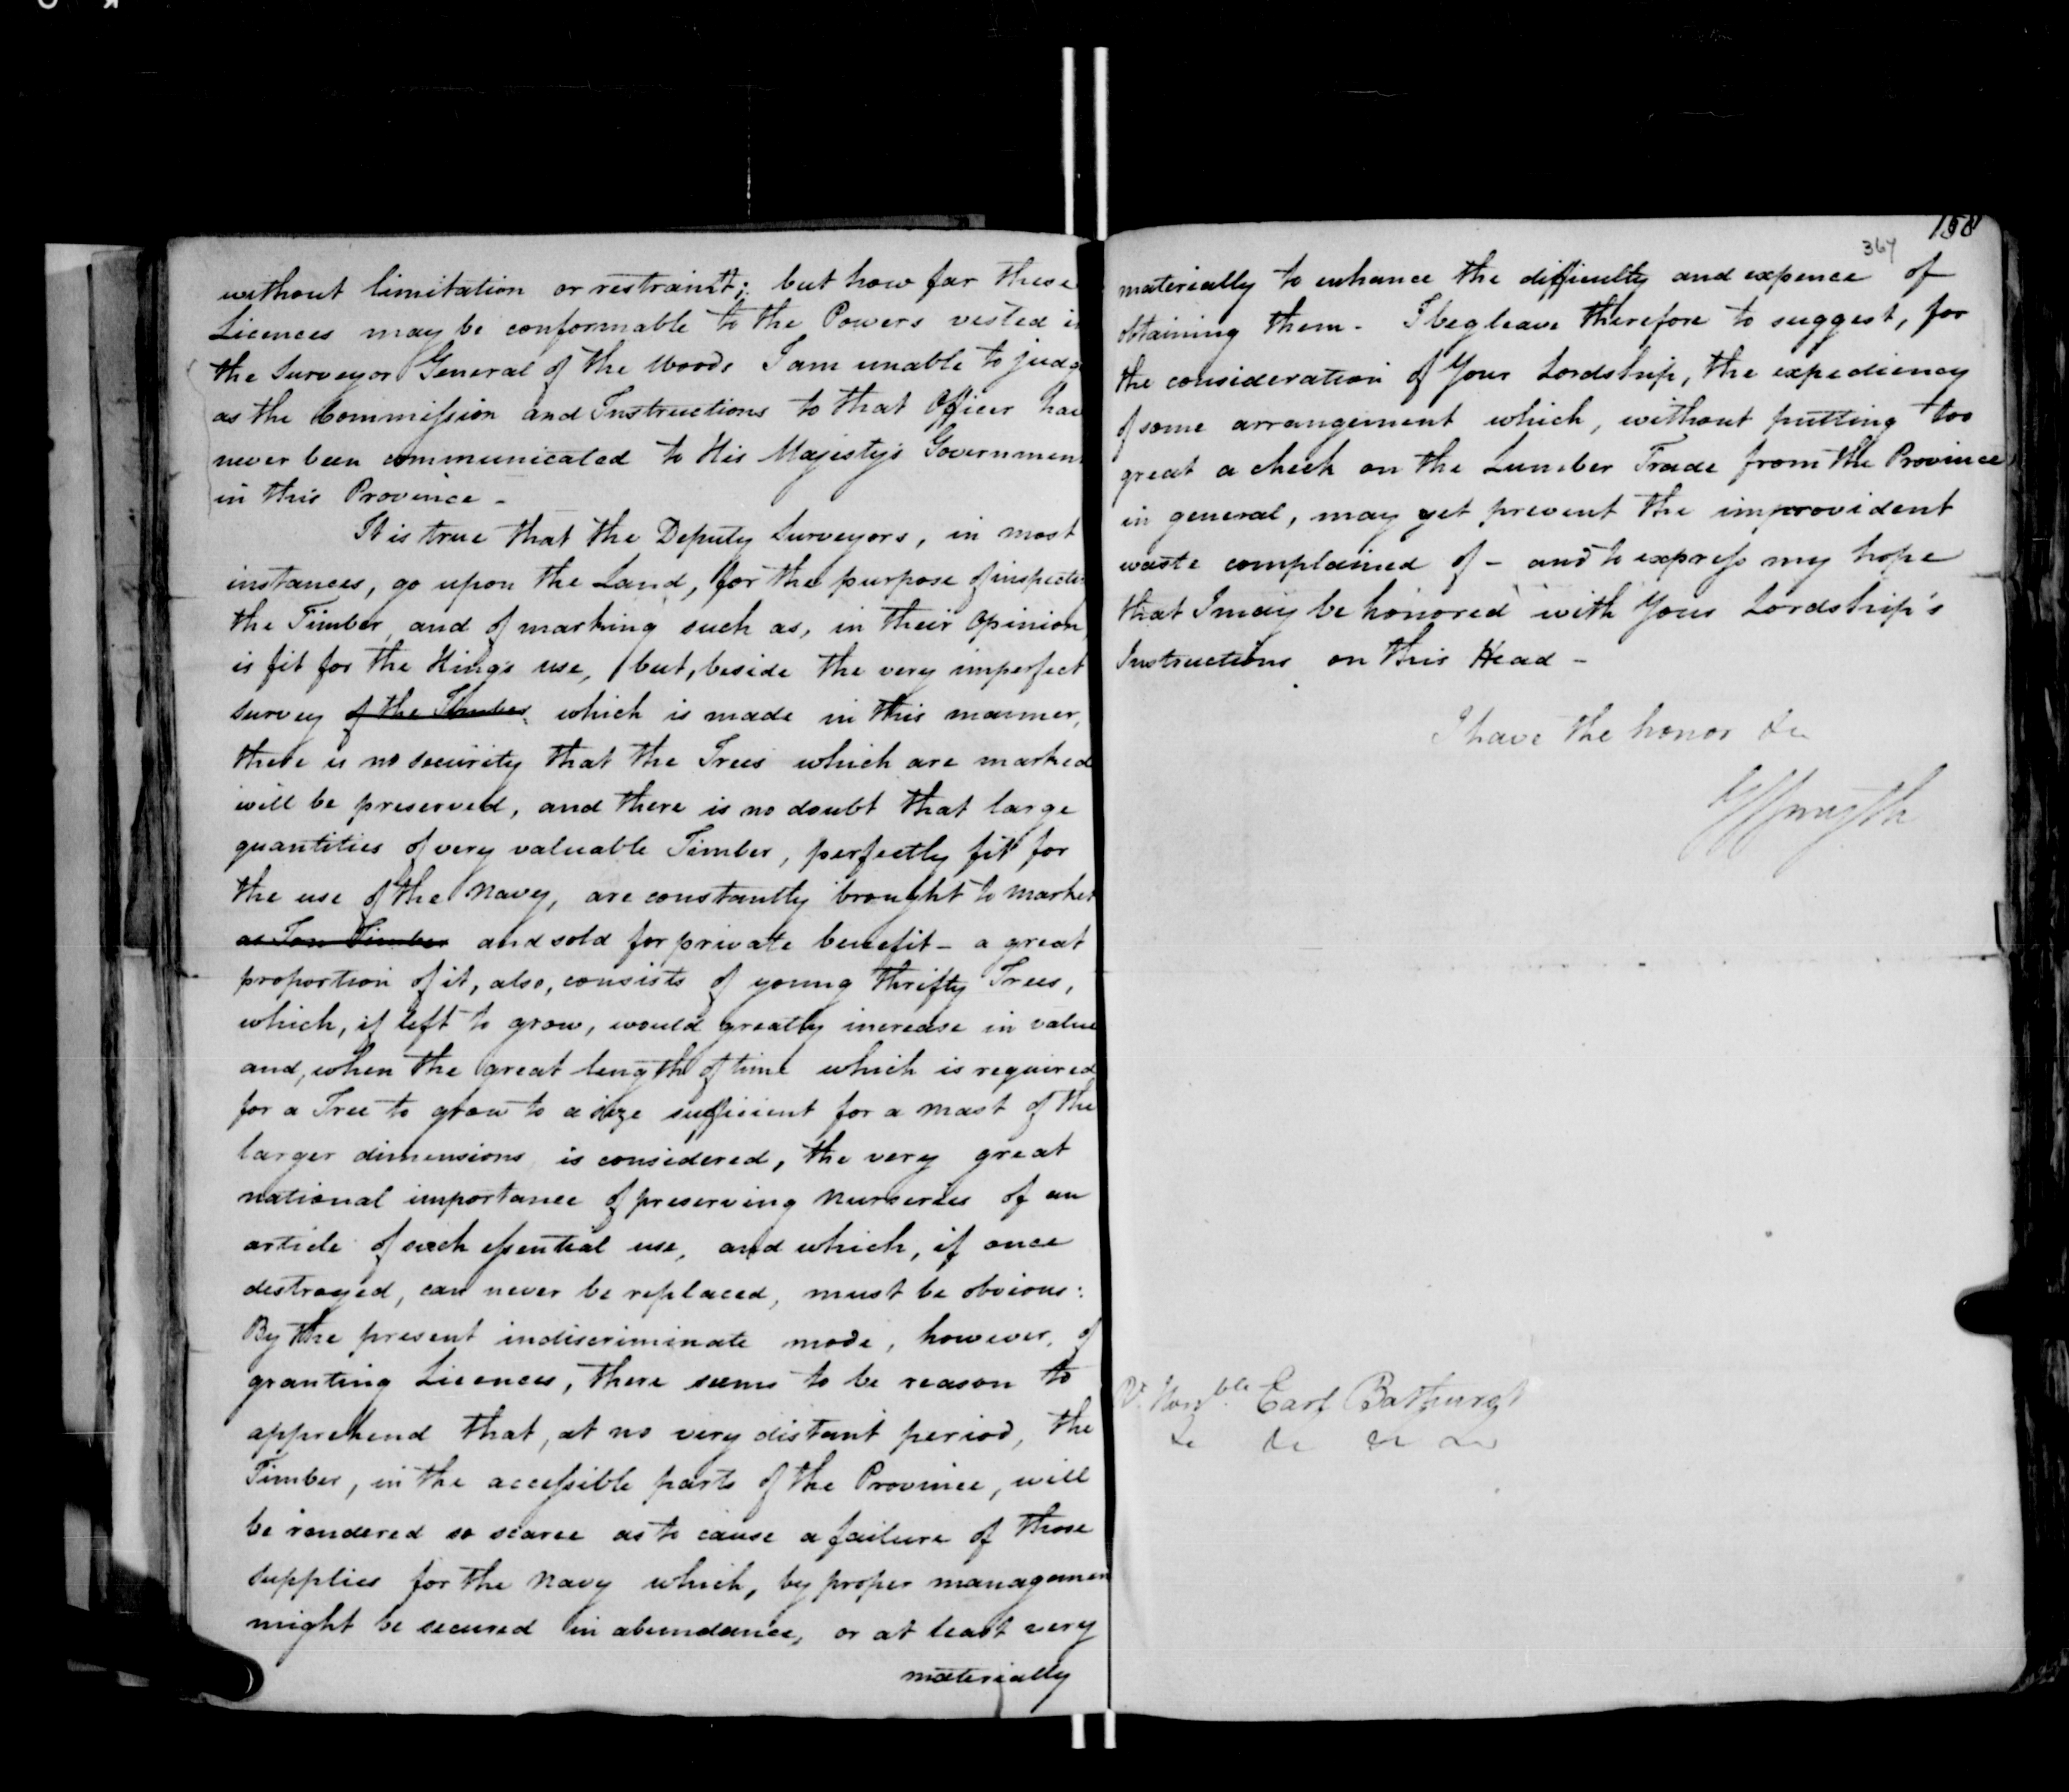 without limitation or restraint; but how far these
Licences may be conformable to the Powers vested in
the Surveyor General of the Woods I am unable to judg
as the Commission and Instructions to that Officer hav
never been communicated to His Majesty's Governmen
in this Province -
It is true that the Deputy Surveyors, in most
instances, go upon the Land, for the purpose of inspectin
the Timber, and of marking such as, in their Opinion,
is fit for the King's use, but, beside the very imperfect
survey of the Timber, which is made in this manner,
there is no security that the Trees which are marked
will be preserved, and there is no doubt that large
quantities of very valuable Timber, perfectly fit for
the use of the Navy, are constantly brought to market
as Ton Timber and sold for private benefit - a great
proportion of it, also, consists of young thrifty Trees,
which, if left to grow, would greatly increase in value
and, when the great length of time which is required
for a Tree to grow to a size sufficient for a Mast of the
larger dimensions is considered, the very great
national importance of preserving Nurseries of an
article of such essential use, and which, if once
destroyed, can never be replaced, must be obvious:
By the present indiscriminate mode, however, of
granting Licences, there seems to be reason to
apprehend that, at no very distant period, the
Timber, in the accessible parts of the Province, will
be rendered so scarce as to cause a failure of those
supplies for the Navy which, by proper managemen
might be secured in abundance, or at least very
materially
158
364
materially to enhance the difficulty and expence of
obtaining them - I beg leave therefore to suggest, for
the consideration of Your Lordship, the expediency
of some arrangement which, without putting too
great a check on the Lumber Trade from the Province
in general, may yet prevent the improvident
waste complained of - and to express my hope
that I may be honored with Your Lordship's
Instructions on this Head -
I have the honor &c
G S Smyth
Rt. Honble. Earl Bathurst
&c &c &c &c